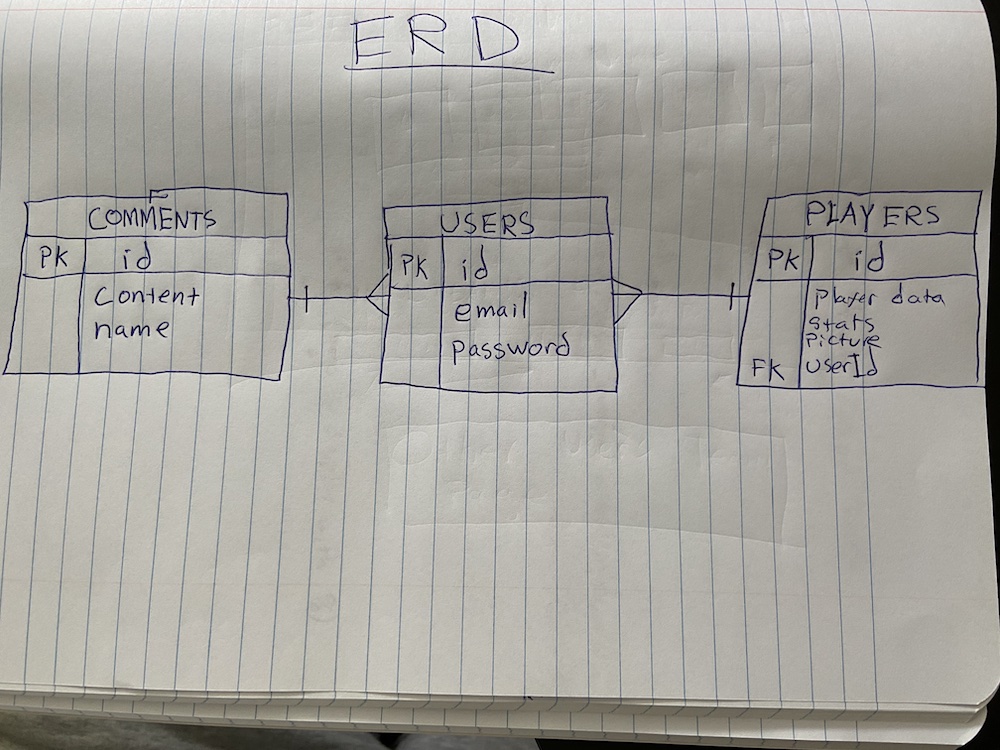 ERD
COMMENTS
PK id
Content
name
USERS
PK id
email
password
PLAYERS
PK id
Player data
Stats
Picture
FK UserId